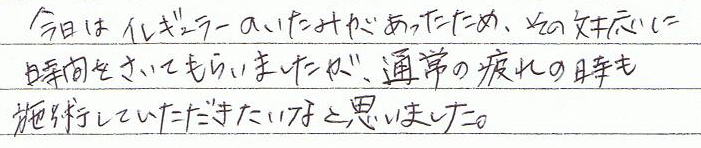 今日はイレギュラーのいたみがあったため、その対応に
時間をさいてもらいましたが、通常の疲れの時も
施術していただきたいなと思いました。